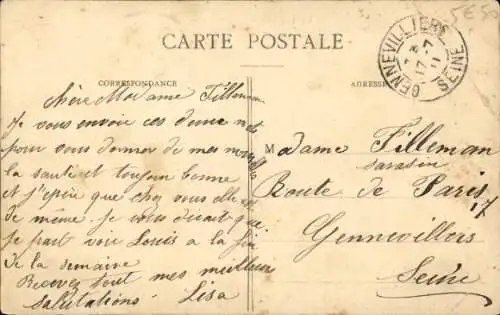 CARTE POSTALE
CORRESPONDANCE
ADRESSE
GENNEVILLIERS
17-7
11
SEINE
Chère Madame Filleman
Je vous envoie ces deux mots
pour vous donner de mes nouvelles
la santé et toujour bonne
et j'epére que chez vous elle est
de meme. Je vous que
je fait voir Louis a la fin
de la semaine
Recevez tout mes meilleur
salutations. Lisa
Madame Filleman
Sarasin
Route de Paris
17
Gennevilliers
Seine